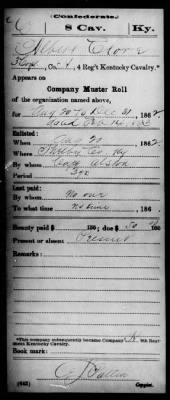 (Confederate.)
C 8 Cav. Ky.
Albert
Co. , 4 Reg't Kentucky Cavalry.*
Appears on
Company Muster Roll
of the organization named above,
for Aug 20 to Dec 31, 1862.
dated
Enlisted:
When Aug 20, 1862.
Where Shelby Co Ky
By whom Capt
Period 3 yrs
Last paid:
By whom No one
To what time No time, 186 .
Bounty paid $ 100; due $ 50 100
Present or absent Present
Remarks:
*This company subsequently became Company K, 8th Regiment Kentucky Cavalry.
Book mark:
(642) Copyist.